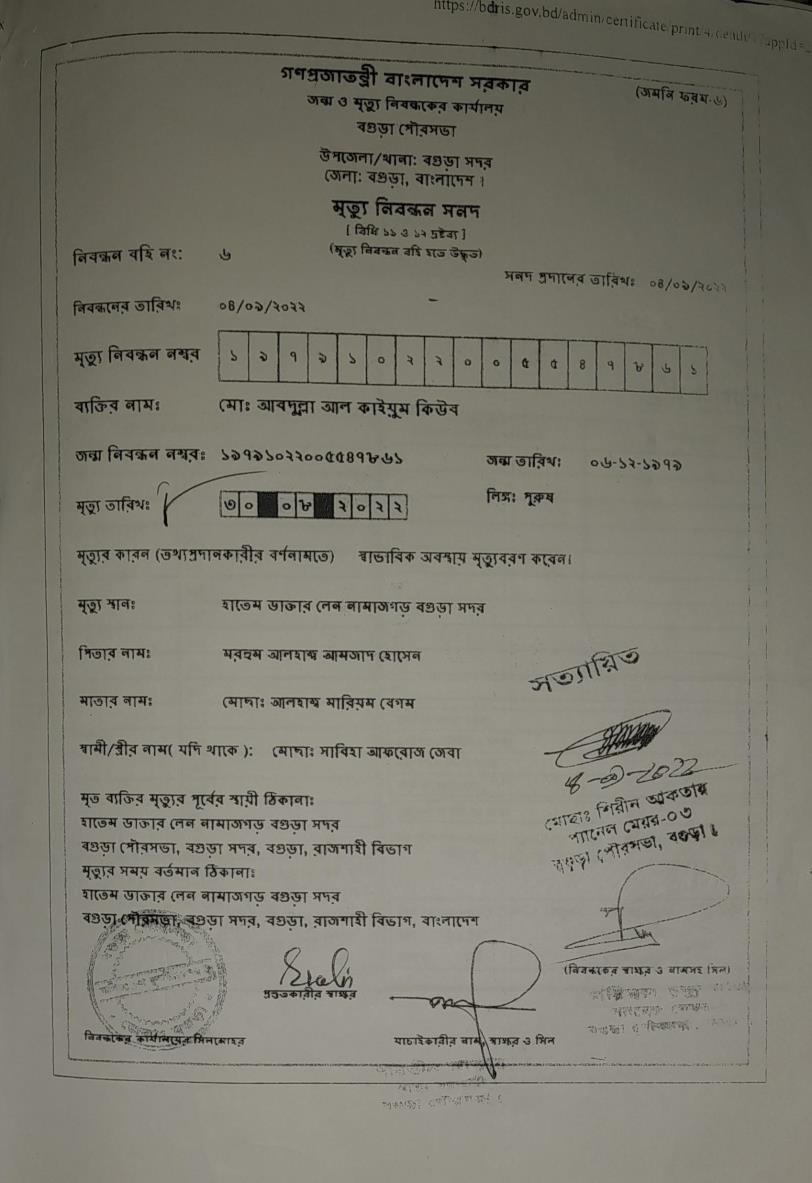 https://bdris.gov.bd/admin/certificate/print/4/death/
গণপ্রজাতন্ত্রী বাংলাদেশ সরকার
(জমনি ফরম-৬)
জন্ম ও মৃত্যু নিবন্ধকের কার্যালয়
বগুড়া পৌরসভা
উপজেলা/থানা: বগুড়া সদর
জেলা: বগুড়া, বাংলাদেশ।
মৃত্যু নিবন্ধন সনদ
[ বিধি ১১ ও ১২ দ্রষ্টব্য ]
(মৃত্যু নিবন্ধন বহি হতে উদ্ধৃত)
নিবন্ধন বহি নং: ৬
সনদ প্রদানের তারিখঃ ০৪/০৯/২০২২
নিবন্ধনের তারিখঃ ০৪/০৯/২০২২
মৃত্যু নিবন্ধন নম্বর ১৯৭৯১০২২০০৫৫৪৭৮৬১
ব্যক্তির নামঃ মোঃ আবদুল্লা আল কাইয়ুম কিউব
জন্ম নিবন্ধন নম্বরঃ ১৯৭৯১০২২০০৫৫৪৭৮৬১ জন্ম তারিখঃ ০৬-১২-১৯৭৯
মৃত্যু তারিখঃ ৩০ ০৮ ২০২২ লিঙ্গ: পুরুষ
মৃত্যুর কারন (তথ্যপ্রদানকারীর বর্ণনামতে) স্বাভাবিক অবস্থায় মৃত্যুবরণ করেন।
মৃত্যু স্থানঃ হাতেম ডাক্তার লেন নামাজগড় বগুড়া সদর
পিতার নামঃ মরহুম আলহাজ্ব আমজাদ হোসেন
সত্যায়িত
মাতার নামঃ মোছাঃ আলহাজ্ব মারিয়ম বেগম
স্বামী/স্ত্রীর নাম( যদি থাকে ): মোছাঃ সাবিহা আফরোজ জেবা
মৃত ব্যক্তির মৃত্যুর পূর্বের স্থায়ী ঠিকানাঃ
হাতেম ডাক্তার লেন নামাজগড় বগুড়া সদর
বগুড়া পৌরসভা, বগুড়া সদর, বগুড়া, রাজশাহী বিভাগ
মোছাঃ শিরীন আকতার
প্যানেল মেয়র-০৩
বগুড়া পৌরসভা, বগুড়া।
মৃত্যুর সময় বর্তমান ঠিকানাঃ
হাতেম ডাক্তার লেন নামাজগড় বগুড়া সদর
বগুড়া পৌরসভা, বগুড়া সদর, বগুড়া, রাজশাহী বিভাগ, বাংলাদেশ
(নিবন্ধকের স্বাক্ষর ও নামসহ সিল)
প্রস্তুতকারীর স্বাক্ষর
নিবন্ধকের কার্যালয়ের সিলমোহর
যাচাইকারীর নাম, স্বাক্ষর ও সিল